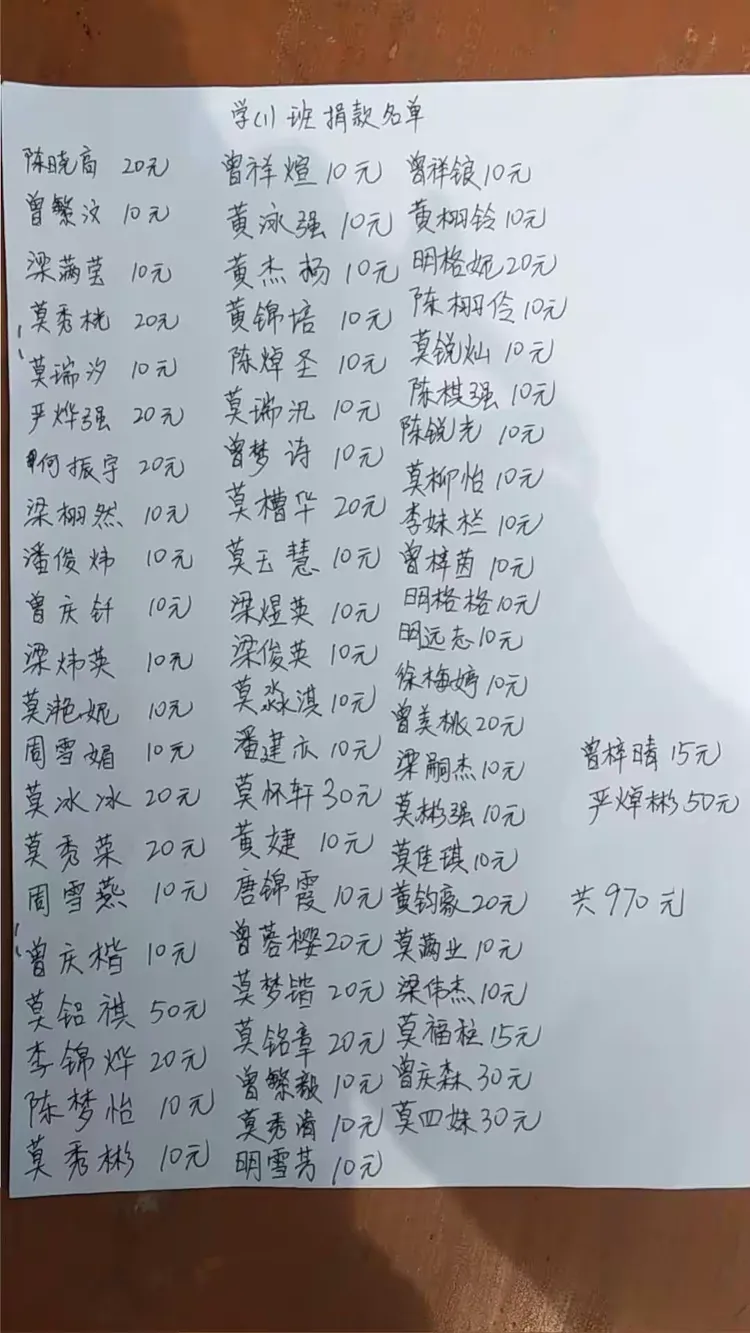 学(1)班捐款名单
陈晓高 20元
曾繁汶 10元
梁满莹 10元
莫秀桄 20元
莫瑞汐 10元
严烨强 20元
何振宇 20元
梁栩然 10元
潘俊炜 10元
曾庆钎 10元
梁炜英 10元
莫滟妮 10元
周雪媚 10元
莫冰冰 20元
莫秀菜 20元
周雪燕 10元
曾庆楷 10元
莫铝祺 50元
李锦烨 20元
陈梦怡 10元
莫秀彬 10元
曾祥煊 10元
黄泳强 10元
黄杰扬 10元
黄锦培 10元
陈焯圣 10元
莫瑞汛 10元
曾梦诗 10元
莫槽华 20元
莫玉慧 10元
梁煜英 10元
梁俊英 10元
莫淼淇 10元
潘建亦 10元
莫怀轩 30元
黄婕 10元
唐锦霞 10元
曾蓉樱 20元
莫梦锴 20元
莫铭章 20元
曾繁毅 10元
莫秀清 10元
明雪芳 10元
曾祥锒 10元
黄栩铃 10元
明格妮 20元
陈栩伶 10元
莫锐灿 10元
陈棋强 10元
陈锐光 10元
莫柳怡 10元
李妹栏 10元
曾梓茵 10元
明格格 10元
明远志 10元
徐梅婷 10元
曾美桃 20元
梁嗣杰 10元
莫彬强 10元
莫佳琪 10元
黄钧豪 20元
莫满业 10元
梁伟杰 10元
莫福柱 15元
曾庆森 30元
莫四妹 30元
曾梓晴 15元
严焯彬 50元
共970元